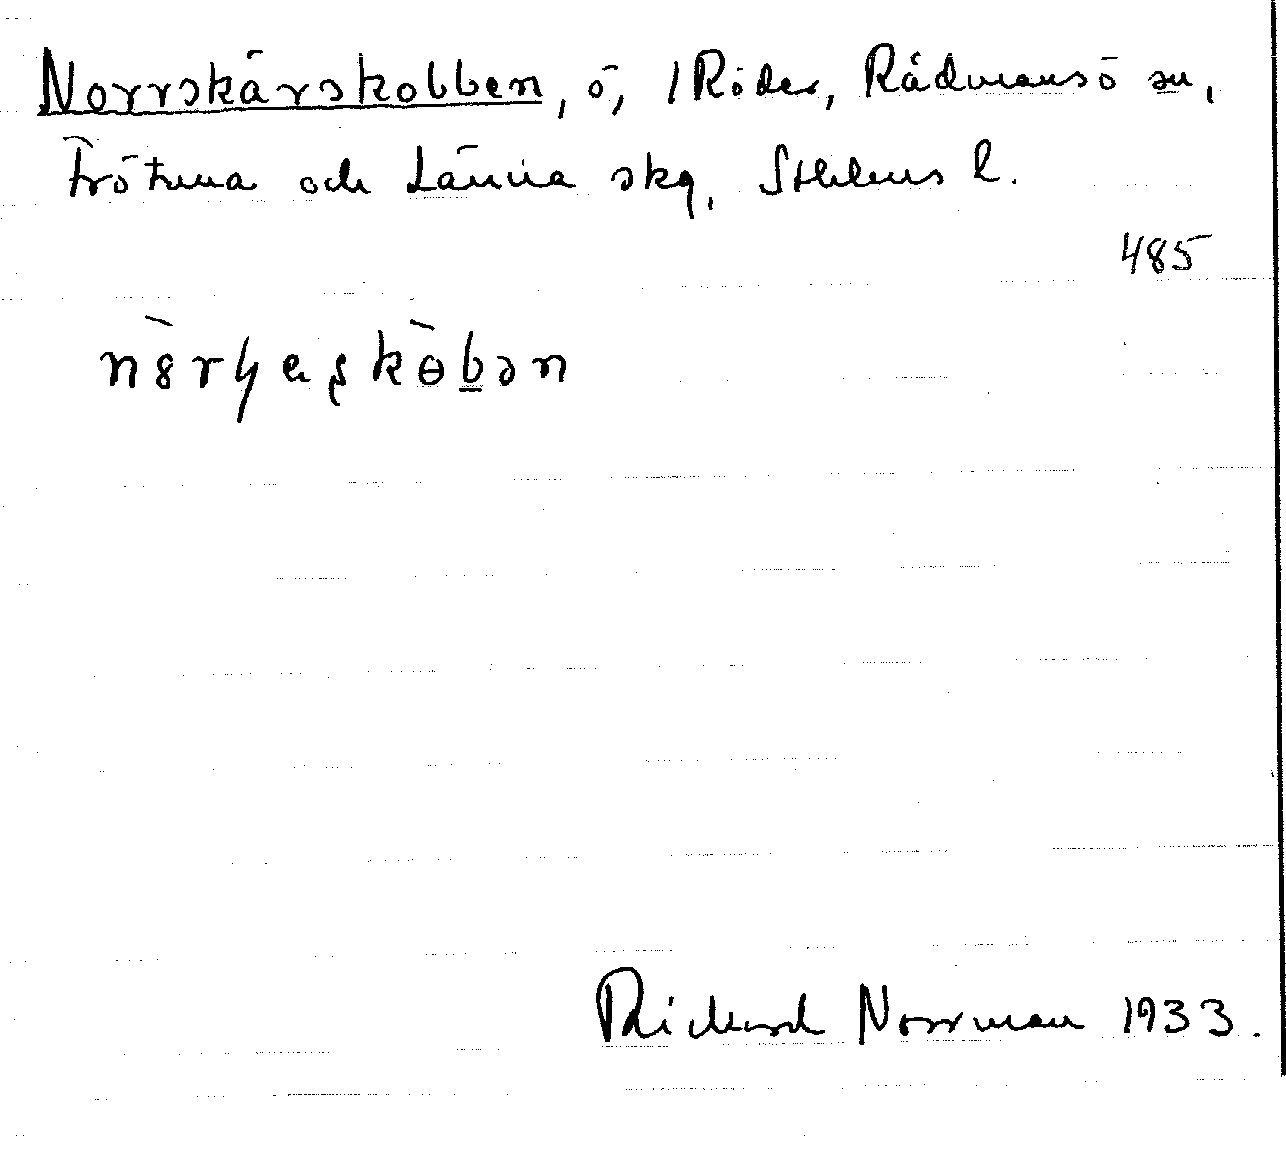 Norrskärskobben, ö, / Röder, Rådmansö sn,
Frötuna och Länna skg, Sthlms l.
485
Rickard Norrman 1933.